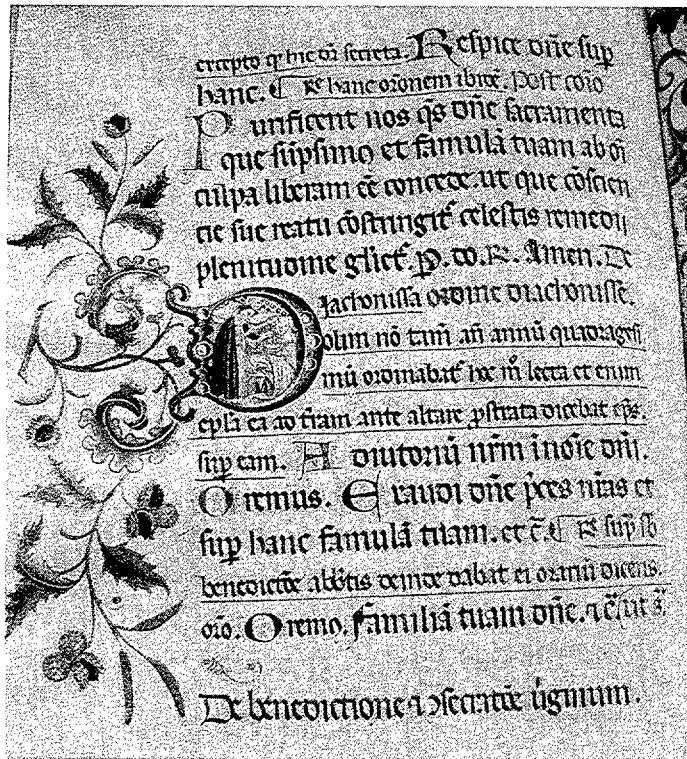 excepto qͥ hic oī secreta. Respice dn̄e sup
hanc. ℟ hanc or̄onem ibidē. Post cōio
Purificent nos qs dn̄e sacramenta
que sūpsim9 et famulā tuam ab oī
culpa liberam eē concede. ut que cōscien
tie sue reatu cōstringit᷑ celestis remedij
plenitudine gliet᷑. P. do. R. Amen. De
Diachonissa ordine diachonisse.
olim nō tam̄ an̄ annū quadragesi
mū ordinabat᷑ hoc mͦ lecta et enim
epl̄a ea ad t̄ram ante altare ꝓstrata dicebat ep̄s.
sup eam. Adiutoriū nr̄m ī noīe dn̄i.
Oremus. Exaudi dn̄e p̄ces nr̄as et
sup hanc famulā tuam. et c̄. ℟ sup
benedictōe abb̄tis deinde dabat ei orariū dicens.
oīo. Oremo. famíliā tuam dn̄e. ⁊ c̄. ut sͣ.
De benedictione ⁊ ꝯsecratōe ūginum.